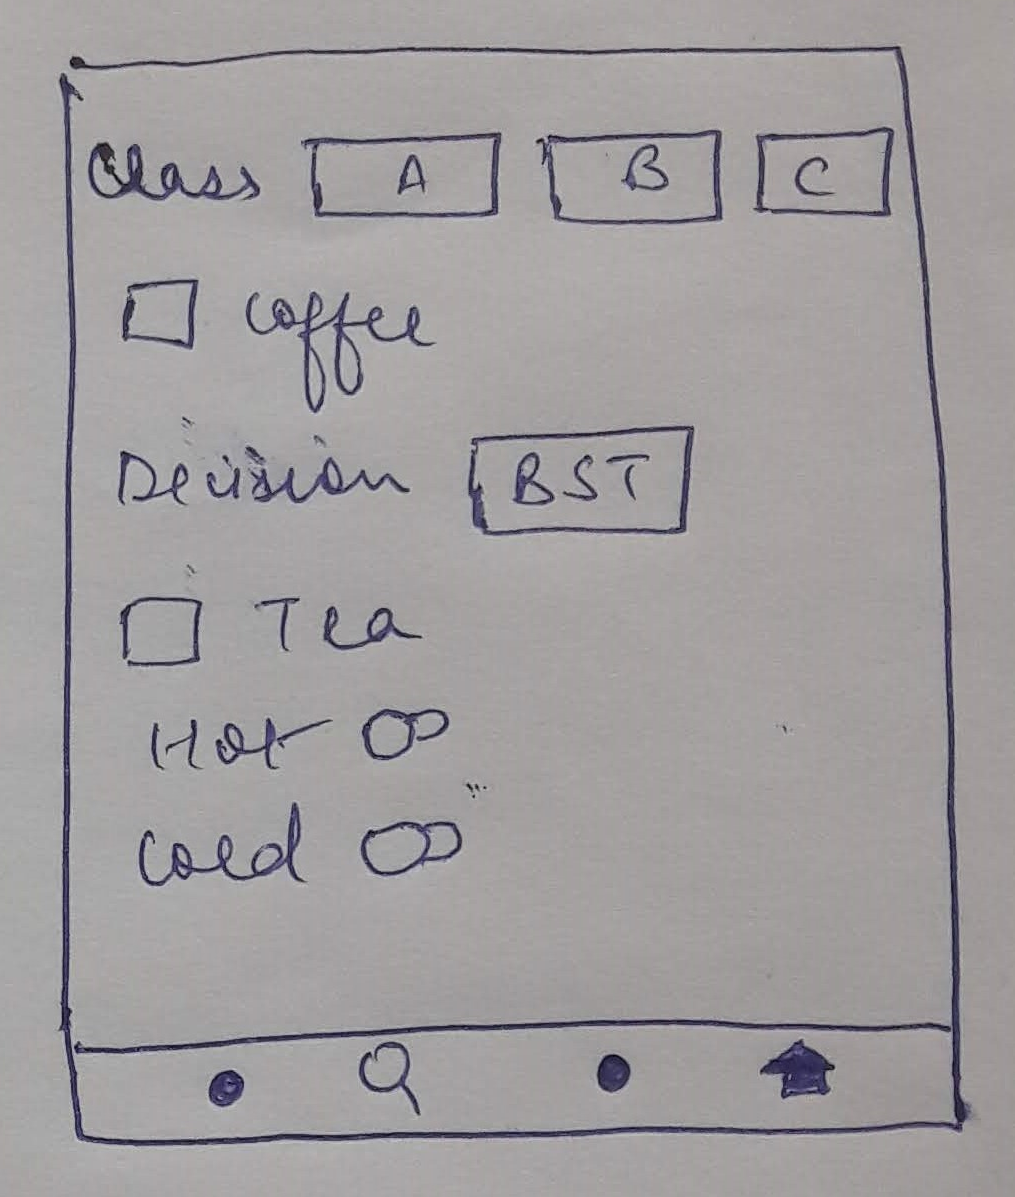 Class A B C
coffee
Decision BST
Tea
Hot
Cold